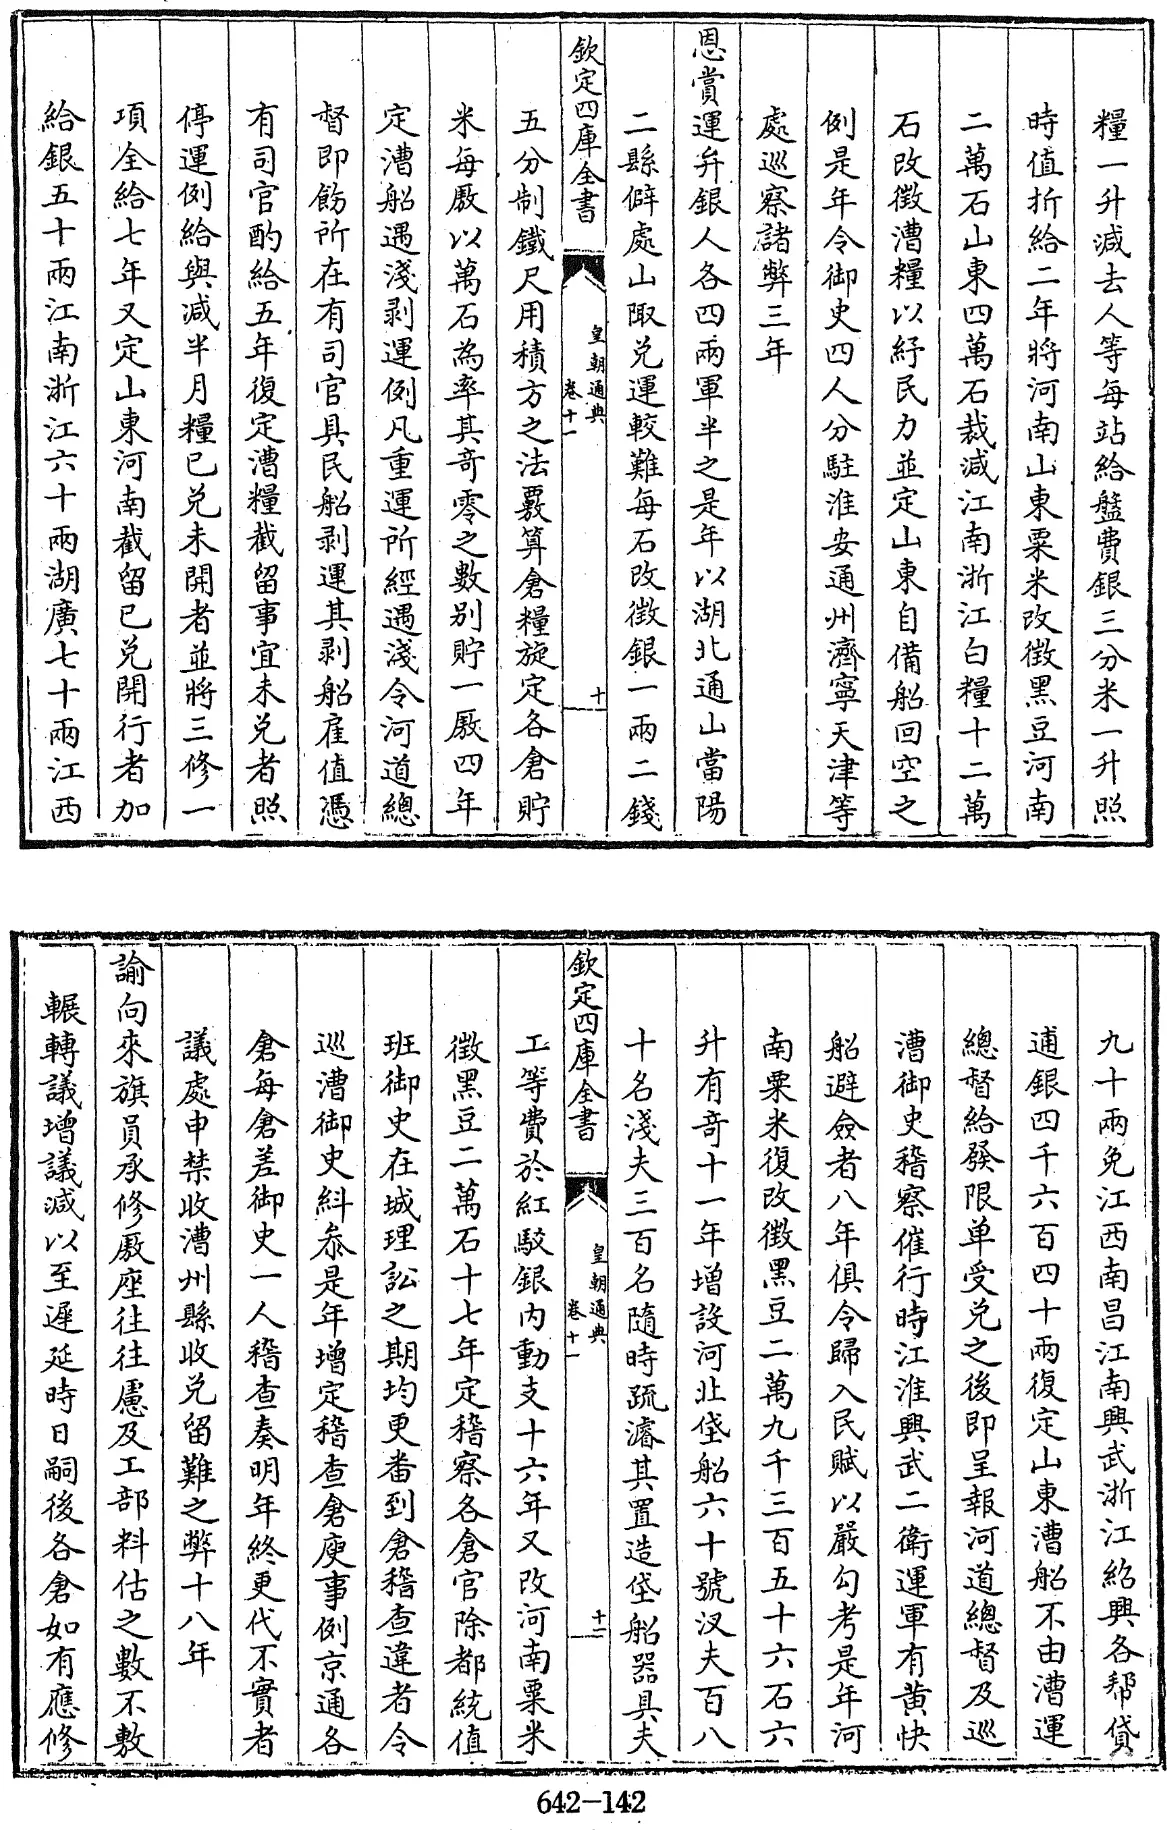 糧一升減去人等每站給盤費銀三分米一升照
時值折給二年將河南山東粟米改徵黑豆河南
二萬石山東四萬石裁減江南浙江白糧十二萬
石改徵漕糧以紓民力並定山東自備船回空之
例是年令御史四人分駐淮安通州濟寧天津等
處巡察諸弊三年
恩賞運弁銀人各四兩軍半之是年以湖北通山當陽
二縣僻處山陬兌運較難每石改徵銀一兩二錢
欽定四庫全書
皇朝通典
卷十一
十
五分制鐵尺用積方之法覈算倉糧旋定各倉貯
米每廒以萬石為率其奇零之數別貯一廒四年
定漕船遇淺剥運例凡重運所經遇淺令河道總
督即飭所在有司官具民船剥運其剥船雇值憑
有司官酌給五年復定漕糧截留事宜未兌者照
停運例給與減半月糧已兌未開者並將三修一
項全給七年又定山東河南截留已兌開行者加
給銀五十兩江南浙江六十兩湖廣七十兩江西
九十兩免江西南昌江南興武浙江紹興各幇貸
逋銀四千六百四十兩復定山東漕船不由漕運
總督給發限单受兌之後即呈報河道總督及巡
漕御史稽察催行時江淮興武二衛運軍有黄快
船避僉者八年俱令歸入民賦以嚴勾考是年河
南粟米復改徵黑豆二萬九千三百五十六石六
升有奇十一年增設河北垡船六十號汊夫百八
十名淺夫三百名隨時疏濬其置造垡船器具夫
欽定四庫全書
皇朝通典
卷十一
十一
工等費於紅駁銀内動支十六年又改河南粟米
徵黑豆二萬石十七年定稽察各倉官除都統值
班御史在城理訟之期均更番到倉稽查違者令
巡漕御史糾叅是年增定稽查倉庾事例京通各
倉每倉差御史一人稽查奏明年終更代不實者
議處申禁收漕州縣收兌留難之弊十八年
諭向來旗員承修廒座往往慮及工部料估之數不敷
輾轉議增議減以至遲延時日嗣後各倉如有應修
642-142